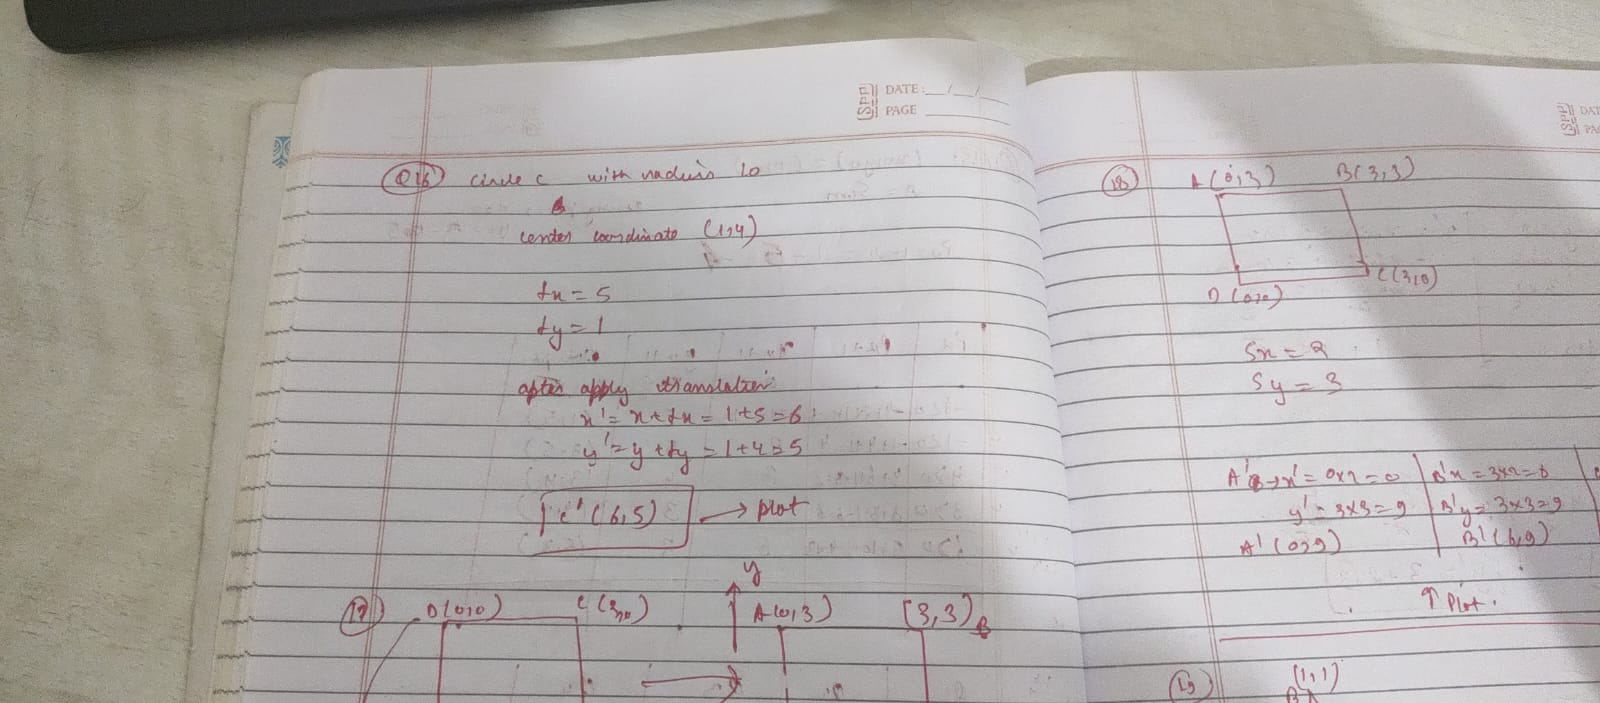 SPP DATE: / /
PAGE
Q16 Circle C with radius 10
center coordinate (1,4)
tx = 5
ty = 1
after apply translation
x' = x + tx = 1+5 = 6
y' = y + ty = 1+4 = 5
c' (6,5) → plot
y
17 D(0,0) A(0,3) (3,3) B
SPP DAT
PA
18 A (0,3) B(3,3)
D (0,0) C(3,0)
Sx = 2
Sy = 3
x' = 0x2 = 0 B'x = 3x2 = 6
y' = 3x3 = 9 B'y = 3x3 = 9
A' (0,9) B' (6,9)
↑ Plot.
19 (1,1)